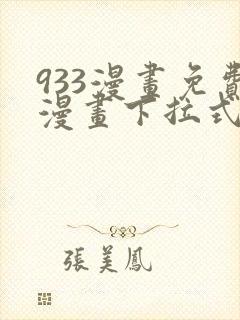 933漫畫免費
漫畫下拉式
張美鳳